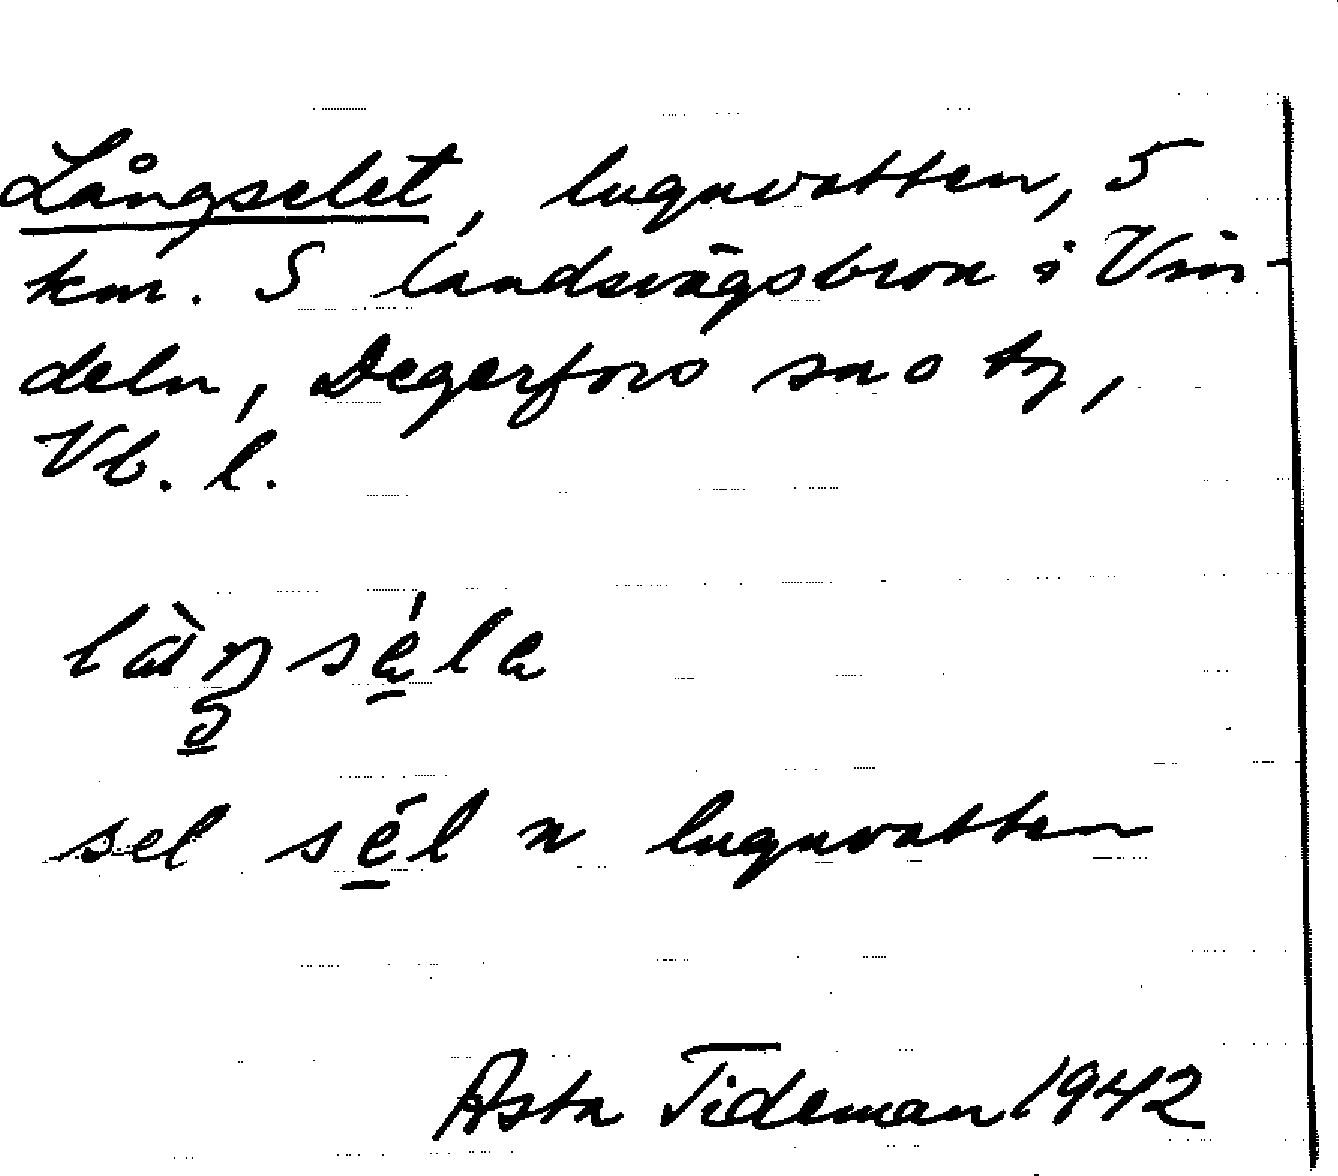 Långselet, lugnvatten, 5
km. S landsvägsbron i Vin-
deln, Degerfors sn o tg,
Vb. l.
sel sél n lugnvatten
Asta Tideman 1942